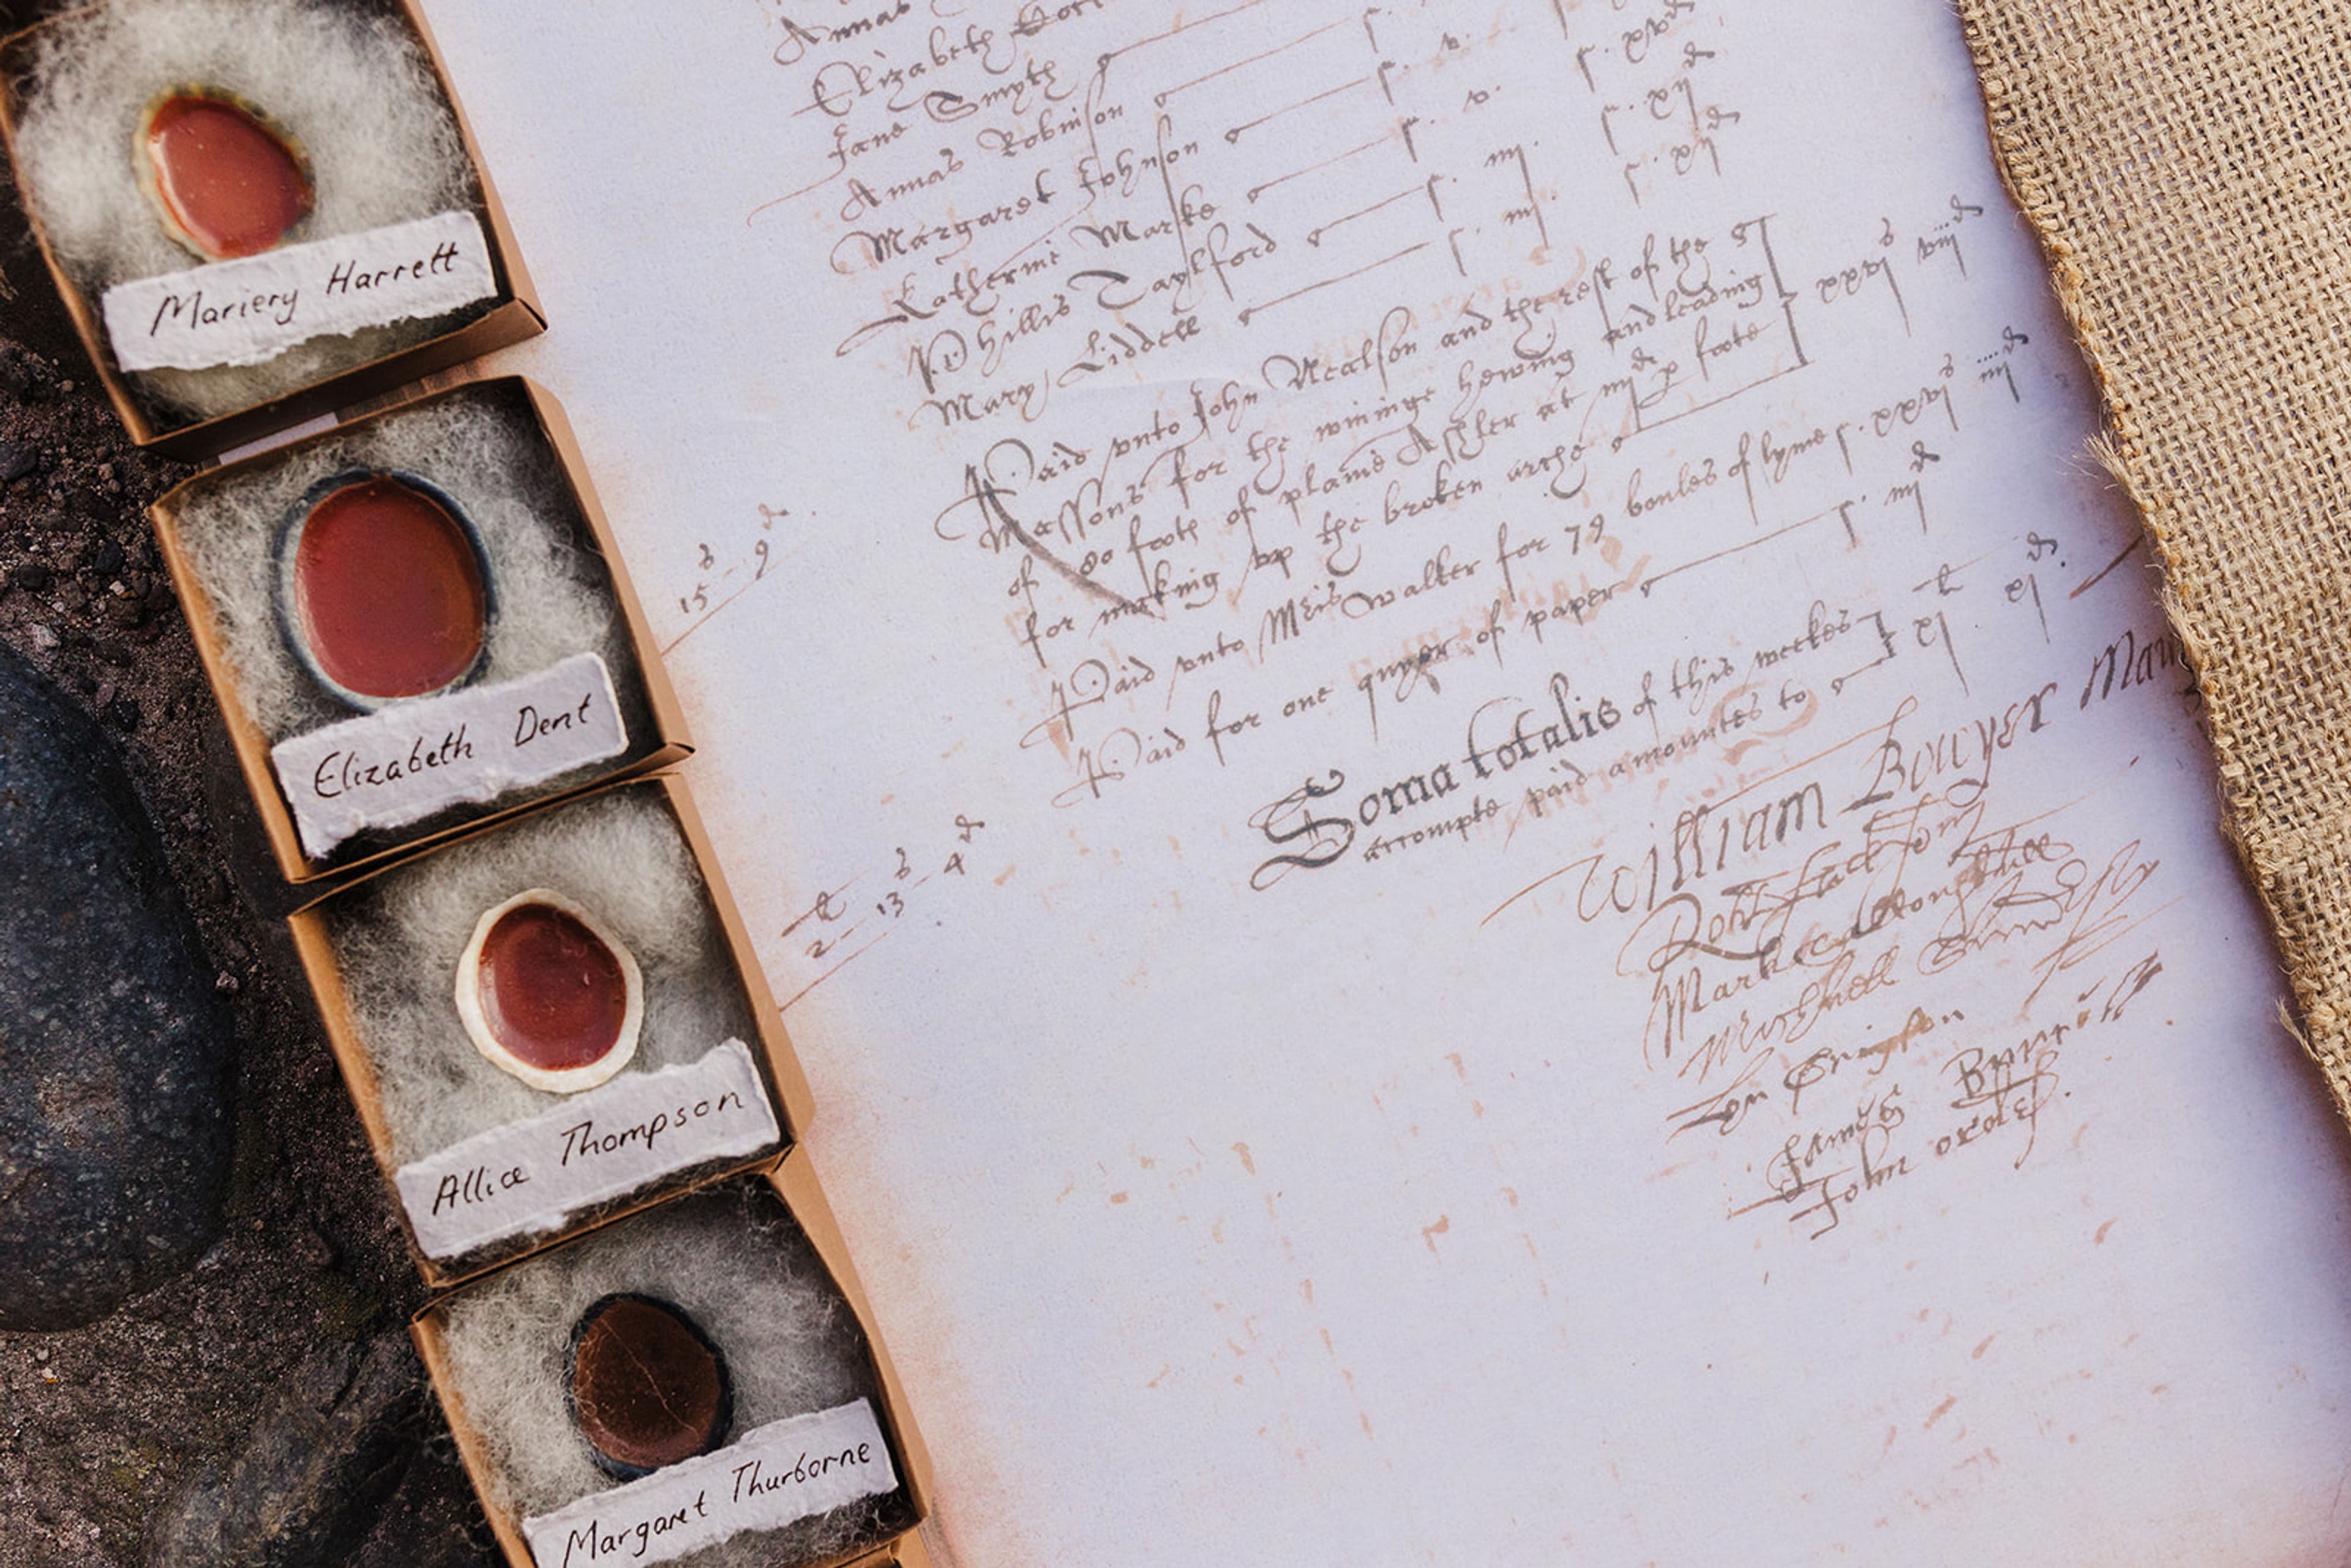 Mariery Harrett
Elizabeth Dent
Allice Thompson
Margaret Thurborne
Annas
Elizabeth
Jane Smyth
Annas Robinson ſ. xvjd
Margaret Johnson ſ. v. ſ. xijd
Katherine Marke ſ. v. ſ. xijd
Phillis Taylford ſ. iiij.
Mary Liddell ſ. iij.
Paid vnto John Nealson and the rest of the
Massons for the wininge hewing and leading xxvjs viijd
of 80 foote of plaine Ashler at iiijd p foote
for making vp the broken arche
15s - 9d
Paid vnto Mris Walker for 79 boules of lyme ſ. xxvjs iiijd
Paid for one quyer of paper ſ. iiijd
Soma totalis of this weekes
accompte paid amountes to xjl xjd.
2l - 13s - 4d
William Bowyer
James
John